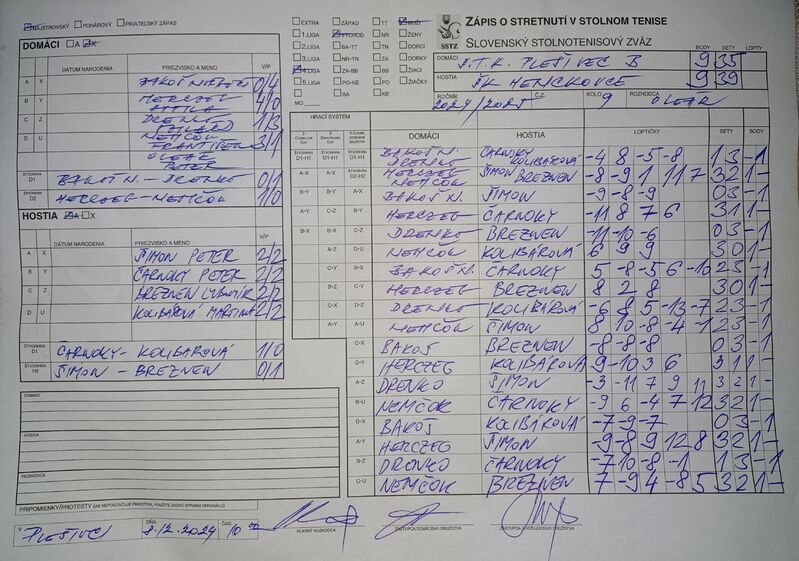 MAJSTROVSKÝ POHÁROVÝ PRIATEĽSKÝ ZÁPAS
DOMÁCI A X
DÁTUM NARODENIA PRIEZVISKO A MENO V/P
A X BAKOŠ 0/4
B Y HERCZEG ATTILA 4/0
C Z DRENKO 1/3
D U NEMČOK FRANTIŠEK 3/1
OLEÁR PETER
ŠTVORHRA D1 BAKOŠ N. - DRENKO 0/1
ŠTVORHRA D2 HERCZEG - NEMČOK 1/0
HOSTIA A X
DÁTUM NARODENIA PRIEZVISKO A MENO V/P
A X ŠIMON PETER 2/2
B Y ČARNOKY PETER 2/2
C Z BREZNEN ĽUBOMÍR 2/2
D U KOLIBÁROVÁ MARTINA 2/2
ŠTVORHRA D1 ČARNOKY - KOLIBAROVÁ 1/0
ŠTVORHRA H2 ŠIMON - BREZNEN 0/1
DOMÁCI
HOSTIA
ROZHODCA
PRIPOMIENKY/PROTESTY (AK NEPOSTAČUJE PRIESTOR, POUŽITE ZADNÚ STRANU ORIGINÁLU)
V PLEŠIVCI DŇA 8.12.2024 ČAS 10 00
HLAVNÝ ROZHODCA
ZÁSTUPCA DOMÁCEHO DRUŽSTVA
ZÁSTUPCA HOSŤUJÚCEHO DRUŽSTVA
EXTRA ZÁPAD TT MUŽI
1.LIGA VÝCHOD NR ŽENY
2.LIGA BA-TT TN DORCI
3.LIGA NR-TN ZA DORKY
4.LIGA ZA-BB BB ŽIACI
5.LIGA PO-KE PO ŽIAČKY
BA KE
MO
SSTZ
ZÁPIS O STRETNUTÍ V STOLNOM TENISE
SLOVENSKÝ STOLNOTENISOVÝ ZVÄZ
BODY SETY LOPTY
DOMÁCI S.T.K. PLEŠIVEC B 9 35
HOSTIA ŠK HENCKOVCE 9 39
ROČNÍK 2024/2025 Č.Z. KOLO 9 ROZHODCA OLEÁR
HRACÍ SYSTÉM DOMÁCI HOSTIA LOPTIČKY SETY BODY
ŠTVORHRA D1-H1 ŠTVORHRA D1-H1 ŠTVORHRA D1-H1 BAKOŠ N. DRENKO ČARNOKY KOLIBÁROVÁ -4 8 -5 -8 1 3 - 1
A-X A-X ŠTVORHRA D2-H2 HERCZEG NEMČOK ŠIMON BREZNEN -8 -9 1 11 7 3 2 1 -
B-Y B-Y A-X BAKOŠ N. ŠIMON -9 -8 -9 0 3 - 1
A-Y C-Z B-Y HERCZEG ČARNOKY -11 8 7 6 3 1 1 -
B-X B-X C-Z DRENKO BREZNEN -11 -10 -6 0 3 - 1
A-Z D-U NEMČOK KOLIBÁROVÁ 6 9 9 3 0 1 -
C-Y B-X BAKOŠ N. ČARNOKY 5 -8 -5 6 -10 2 3 - 1
B-Z C-Y HERCZEG BREZNEN 8 2 8 3 0 1 -
C-X D-Z DRENKO KOLIBÁROVÁ -6 8 5 -13 -7 2 3 - 1
A-Y A-U NEMČOK ŠIMON 8 10 -8 -4 -1 2 3 - 1
C-X BAKOŠ BREZNEN -8 -8 -8 0 3 - 1
D-Y HERCZEG KOLIBÁROVÁ 9 -10 3 6 3 1 1 -
A-Z DRENKO ŠIMON -3 -11 7 9 11 3 2 1 -
B-U NEMČOK ČARNOKY -9 6 -4 7 12 3 2 1 -
D-X BAKOŠ KOLIBÁROVÁ -7 -9 -7 0 3 - 1
A-Y HERCZEG ŠIMON -9 -8 9 12 8 3 2 1 -
B-Z DRENKO ČARNOKY -7 10 -8 -1 1 3 - 1
C-U NEMČOK BREZNEN -7 -9 4 -8 5 3 2 1 -